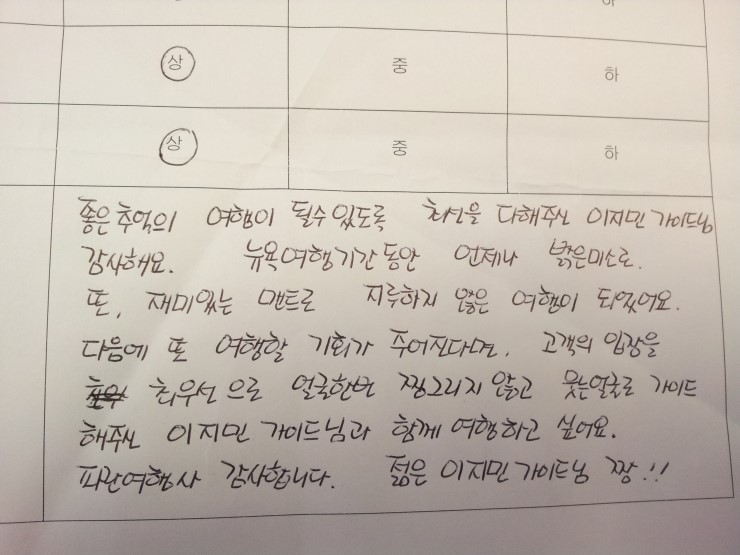 하
상 중 하
상 중 하
좋은추억의 여행이 될수있도록 최선을 다해주신 이지민가이드님
감사해요. 뉴욕여행기간동안 언제나 밝은미소로.
또, 재미있는 멘트로 지루하지 않은 여행이 되었어요.
다음에 또 여행할 기회가 주어진다면, 고객의 입장을
최우선으로 얼굴한번 찡그리지 않고 웃는얼굴로 가이드
해주신 이지민 가이드님과 함께여행하고 싶어요.
파란여행사 감사합니다. 젊은 이지민가이드님 짱!!